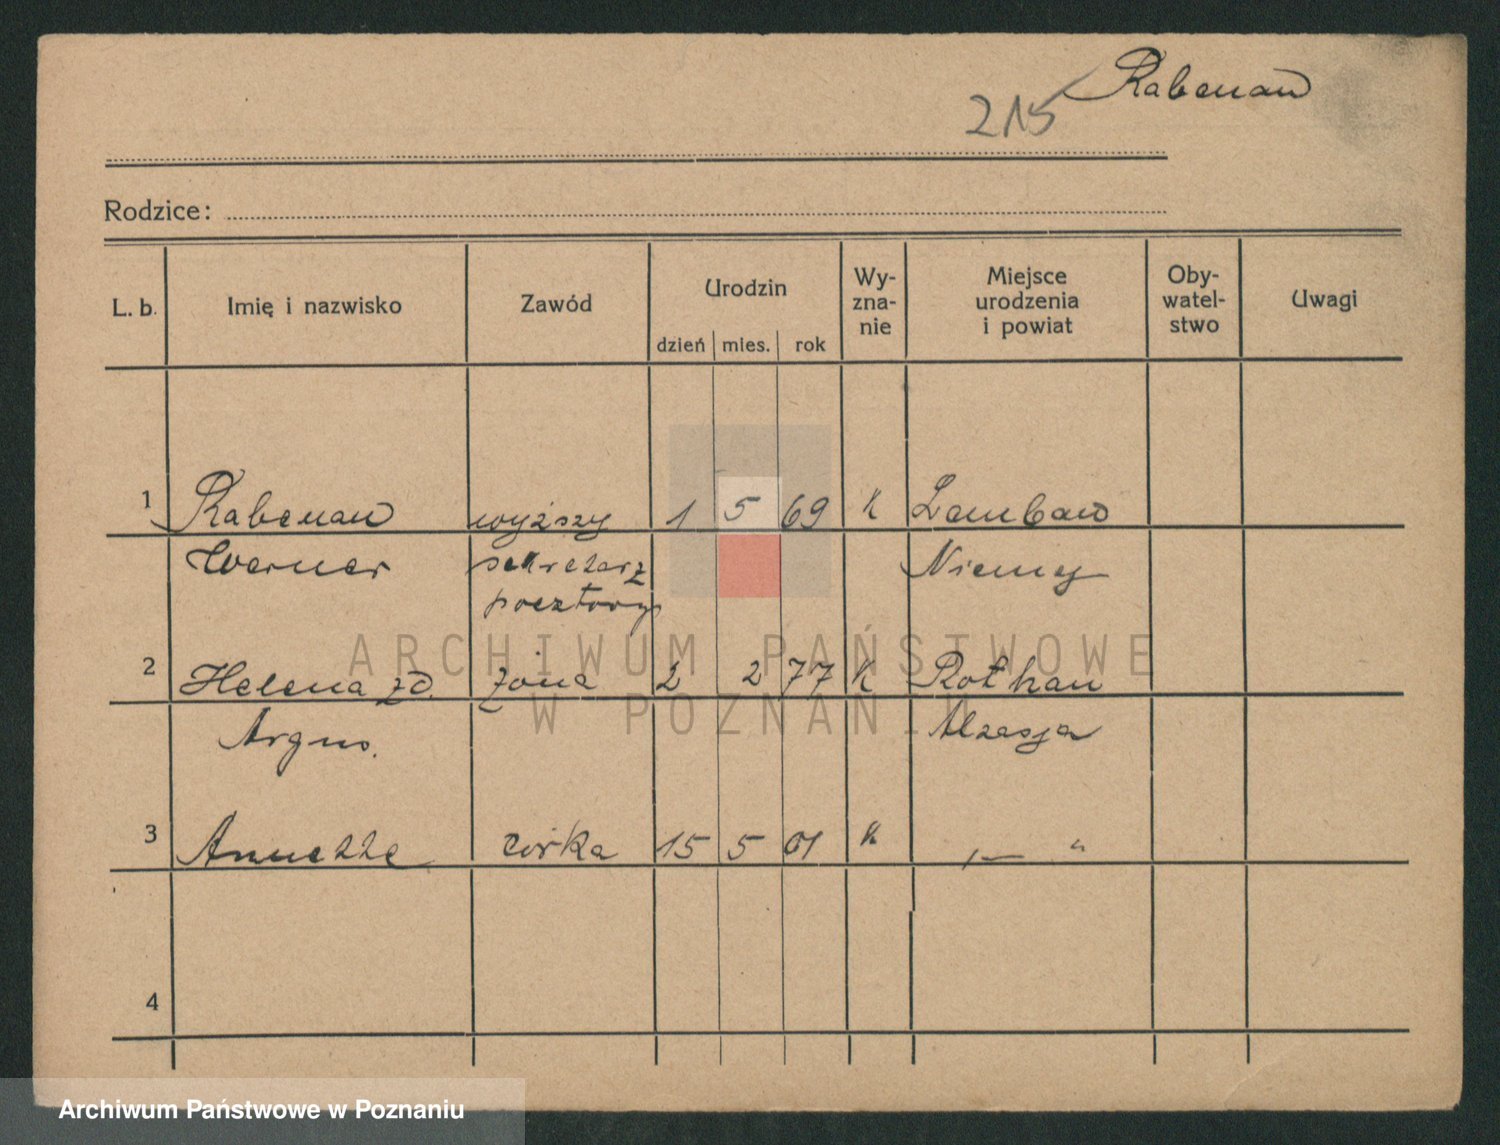 215 Rabenau
Rodzice:
L. b. Imię i nazwisko Zawód Urodzin dzień mies. rok Wy-zna-nie Miejsce urodzenia i powiat Oby-watel-stwo Uwagi
1 Rabenau wyższy 1 5 69 k
Werner sekretarz Niemcy
pocztowy
ARCHIWUM PAŃSTWOWE
2 Helena żd. żona 2 2 77 k Rothau
W POZNANIU
Argus. Alzasja
3 Annette córka 15 5 01 k — "
4
Archiwum Państwowe w Poznaniu